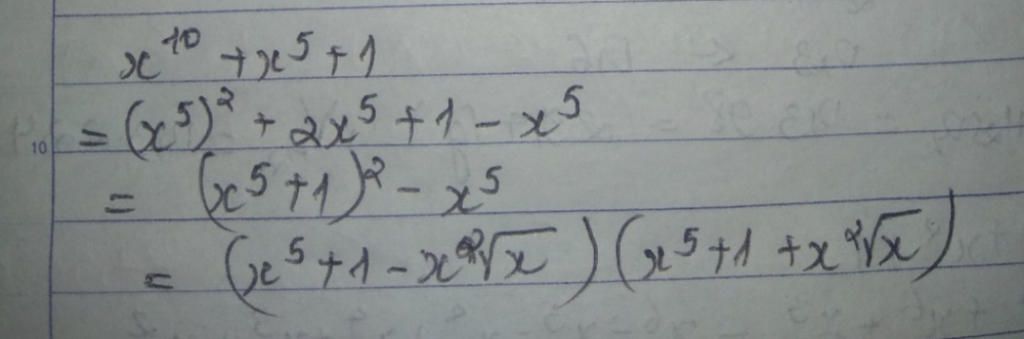 x¹⁰ + x⁵ + 1
= (x⁵)² + 2x⁵ + 1 - x⁵
= (x⁵ + 1)² - x⁵
= (x⁵ + 1 - x²√x)(x⁵ + 1 + x²√x)
10